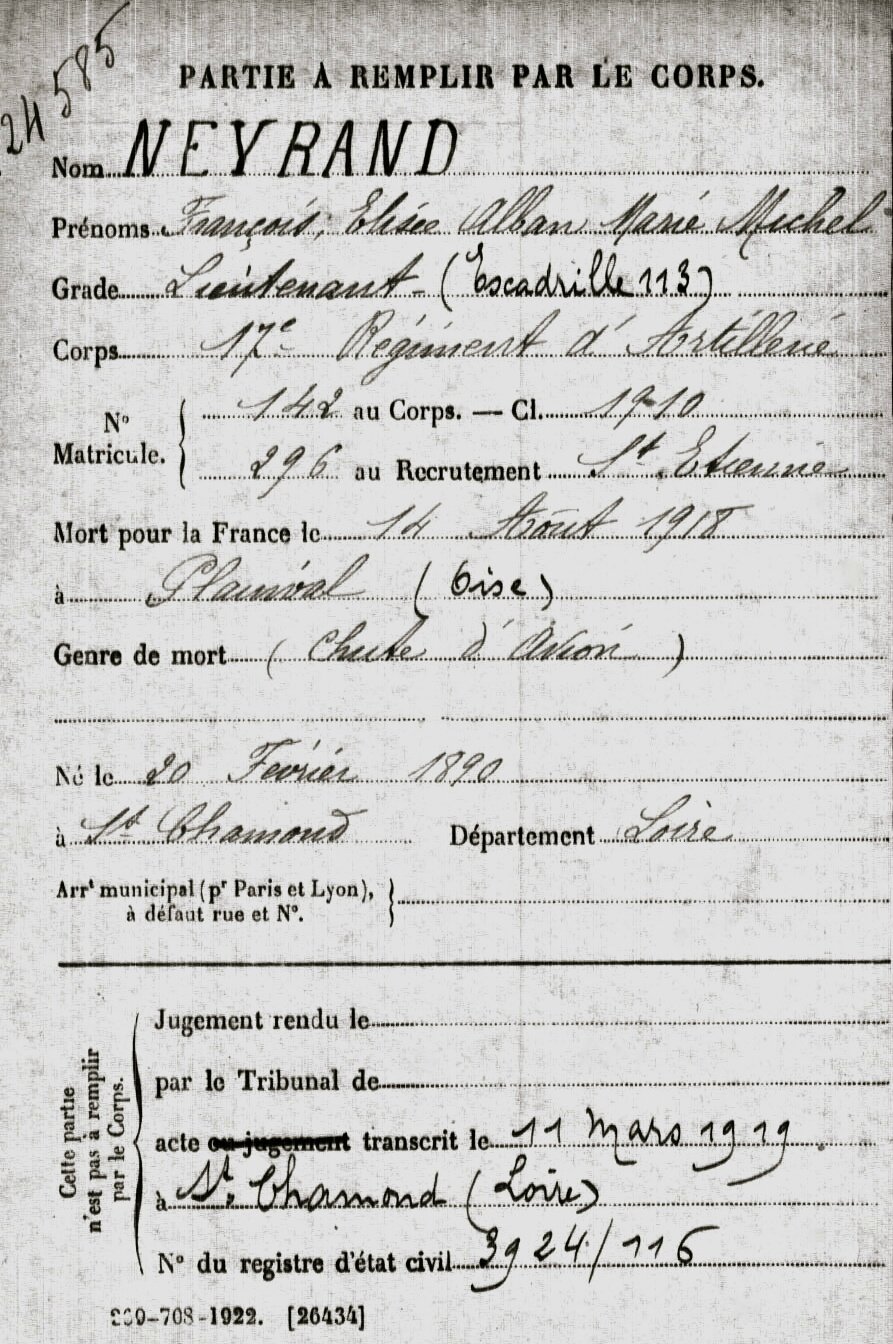 24585
PARTIE A REMPLIR PAR LE CORPS.
Nom NEYRAND
Prénoms François, Elisée Alban Marie Michel
Grade Lieutenant (Escadrille 113)
Corps 17e Régiment d'Artillerie
No Matricule. { 142 au Corps. — Cl. 1910
296 au Recrutement St Etienne
Mort pour la France le 14 Août 1918
à Plainval (Oise)
Genre de mort (Chute d'Avion)
Né le 20 Février 1890
à St Chamond Département Loire
Arrt municipal (pr Paris et Lyon),
à défaut rue et No. }
Cette partie
n'est pas à remplir
par le Corps.
Jugement rendu le
par le Tribunal de
acte ou jugement transcrit le 11 Mars 1919.
à St. Chamond (Loire)
No du registre d'état civil 3924/116
-708-1922. [26434]